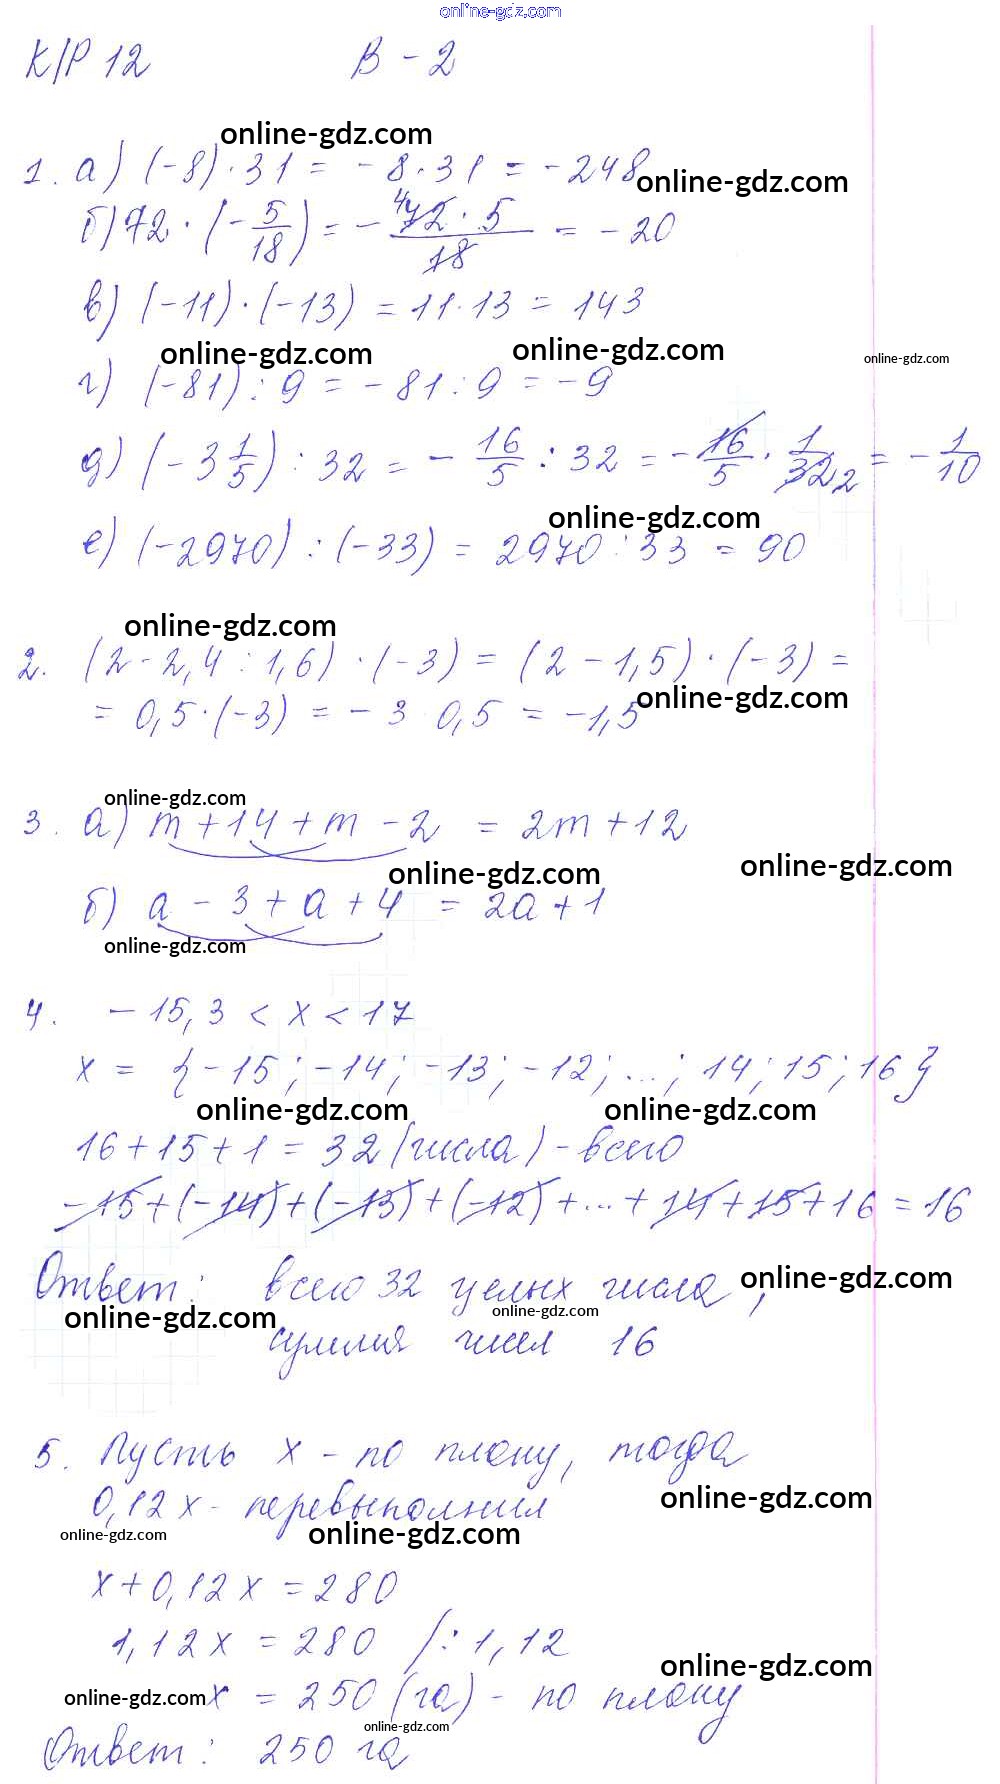 online-gdz.com
К/Р 12 В - 2
online-gdz.com
1. а) (-8) · 31 = - 8 · 31 = - 248
online-gdz.com
б) 72 · (- 5/18) = - 72 · 5 / 18 = - 20
4
в) (-11) · (-13) = 11 · 13 = 143
online-gdz.com online-gdz.com online-gdz.com
г) (-81) : 9 = - 81 : 9 = - 9
д) (- 3 1/5) : 32 = - 16/5 : 32 = - 16/5 · 1/32 2 = - 1/10
online-gdz.com
е) (-2970) : (-33) = 2970 : 33 = 90
online-gdz.com
2. (2 - 2,4 : 1,6) · (-3) = (2 - 1,5) · (-3) =
online-gdz.com
= 0,5 · (-3) = - 3 · 0,5 = - 1,5
online-gdz.com
3. а) m + 14 + m - 2 = 2m + 12
online-gdz.com online-gdz.com
б) a - 3 + a + 4 = 2a + 1
online-gdz.com
4. - 15,3 < x < 17
x = {-15; -14; -13; -12; ...; 14; 15; 16}
online-gdz.com online-gdz.com
16 + 15 + 1 = 32 (числа) - всего
-15 + (-14) + (-13) + (-12) + ... + 14 + 15 + 16 = 16
Ответ: всего 32 целых числа,
online-gdz.com
online-gdz.com online-gdz.com
сумма чисел 16
5. Пусть x - по плану, тогда
0,12x - перевыполнил
online-gdz.com
online-gdz.com online-gdz.com
x + 0,12x = 280
1,12x = 280 /: 1,12
online-gdz.com
online-gdz.com
x = 250 (га) - по плану
online-gdz.com
Ответ: 250 га